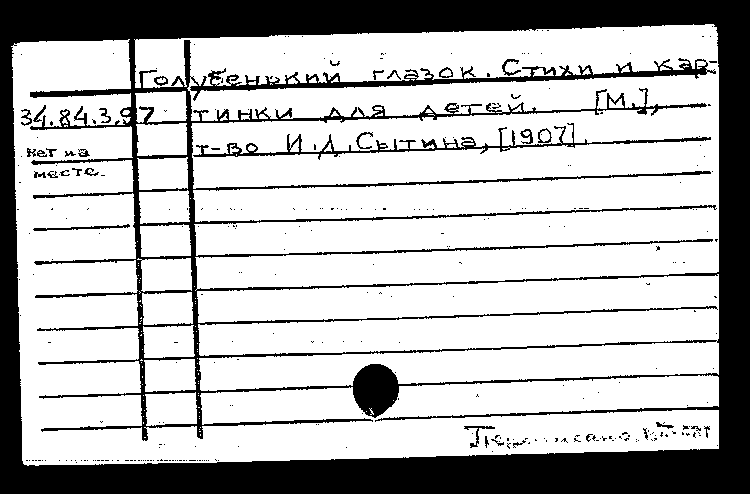 Голубенький глазок. Стихи и кар-
34.84.3.97 тинки для детей. [М.],
т-во И.Д.Сытина, [1907].
нет на
месте.
Переписано